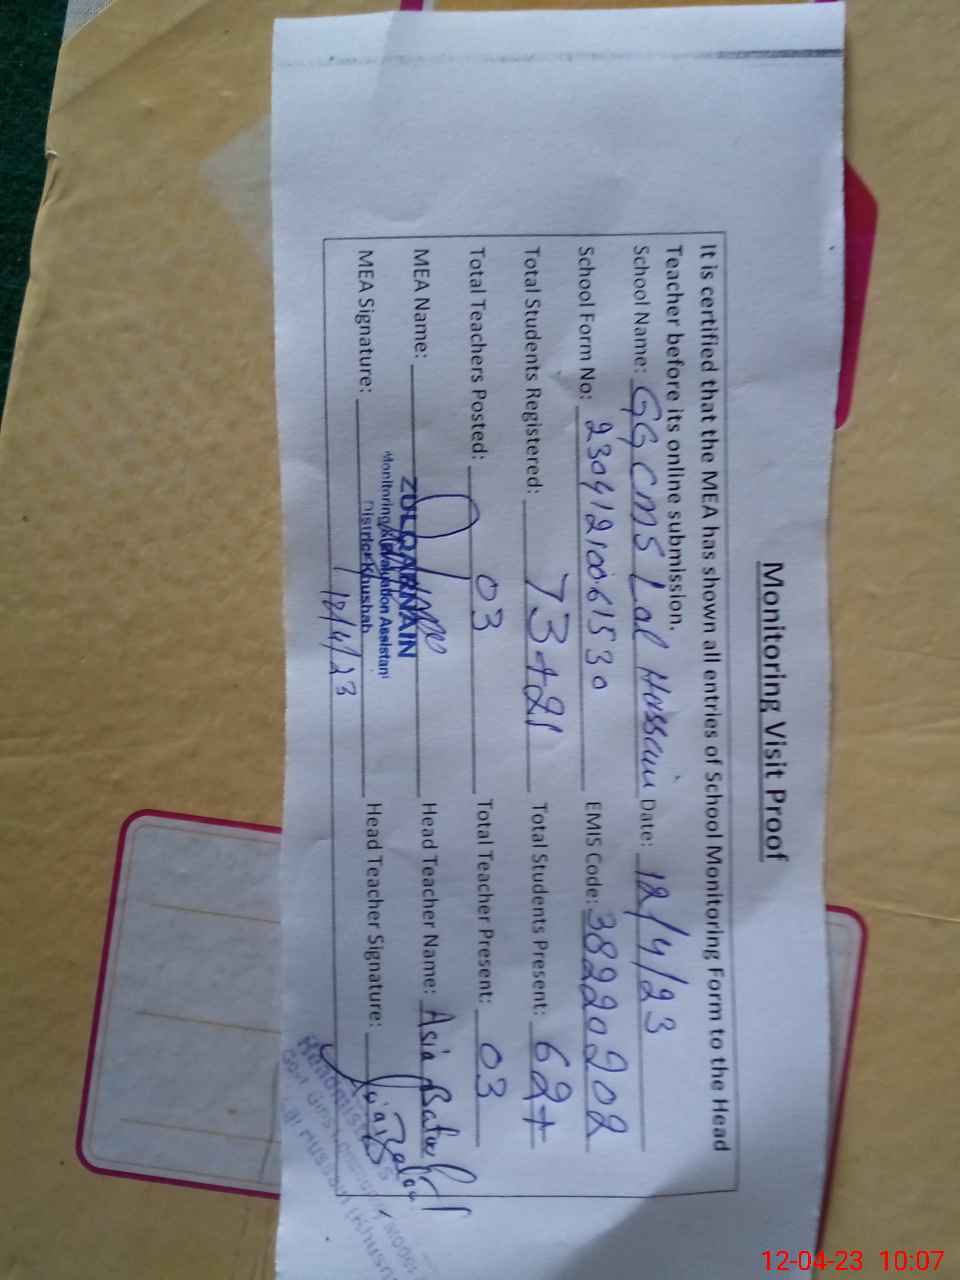 Monitoring Visit Proof
It is certified that the MEA has shown all entries of School Monitoring Form to the Head
Teacher before its online submission.
School Name: GGCMS Lal Hussain Date: 12/4/23
School Form No: 23041210061530 EMIS Code: 38220202
Total Students Registered: 73+21 Total Students Present: 62+
Total Teachers Posted: 03 Total Teacher Present: 03
MEA Name: ZULQARNAIN Head Teacher Name: Asia Batool
Monitoring & Evaluation Assistant
MEA Signature: District Khushab Head Teacher Signature:
12/4/23
12-04-23 10:07